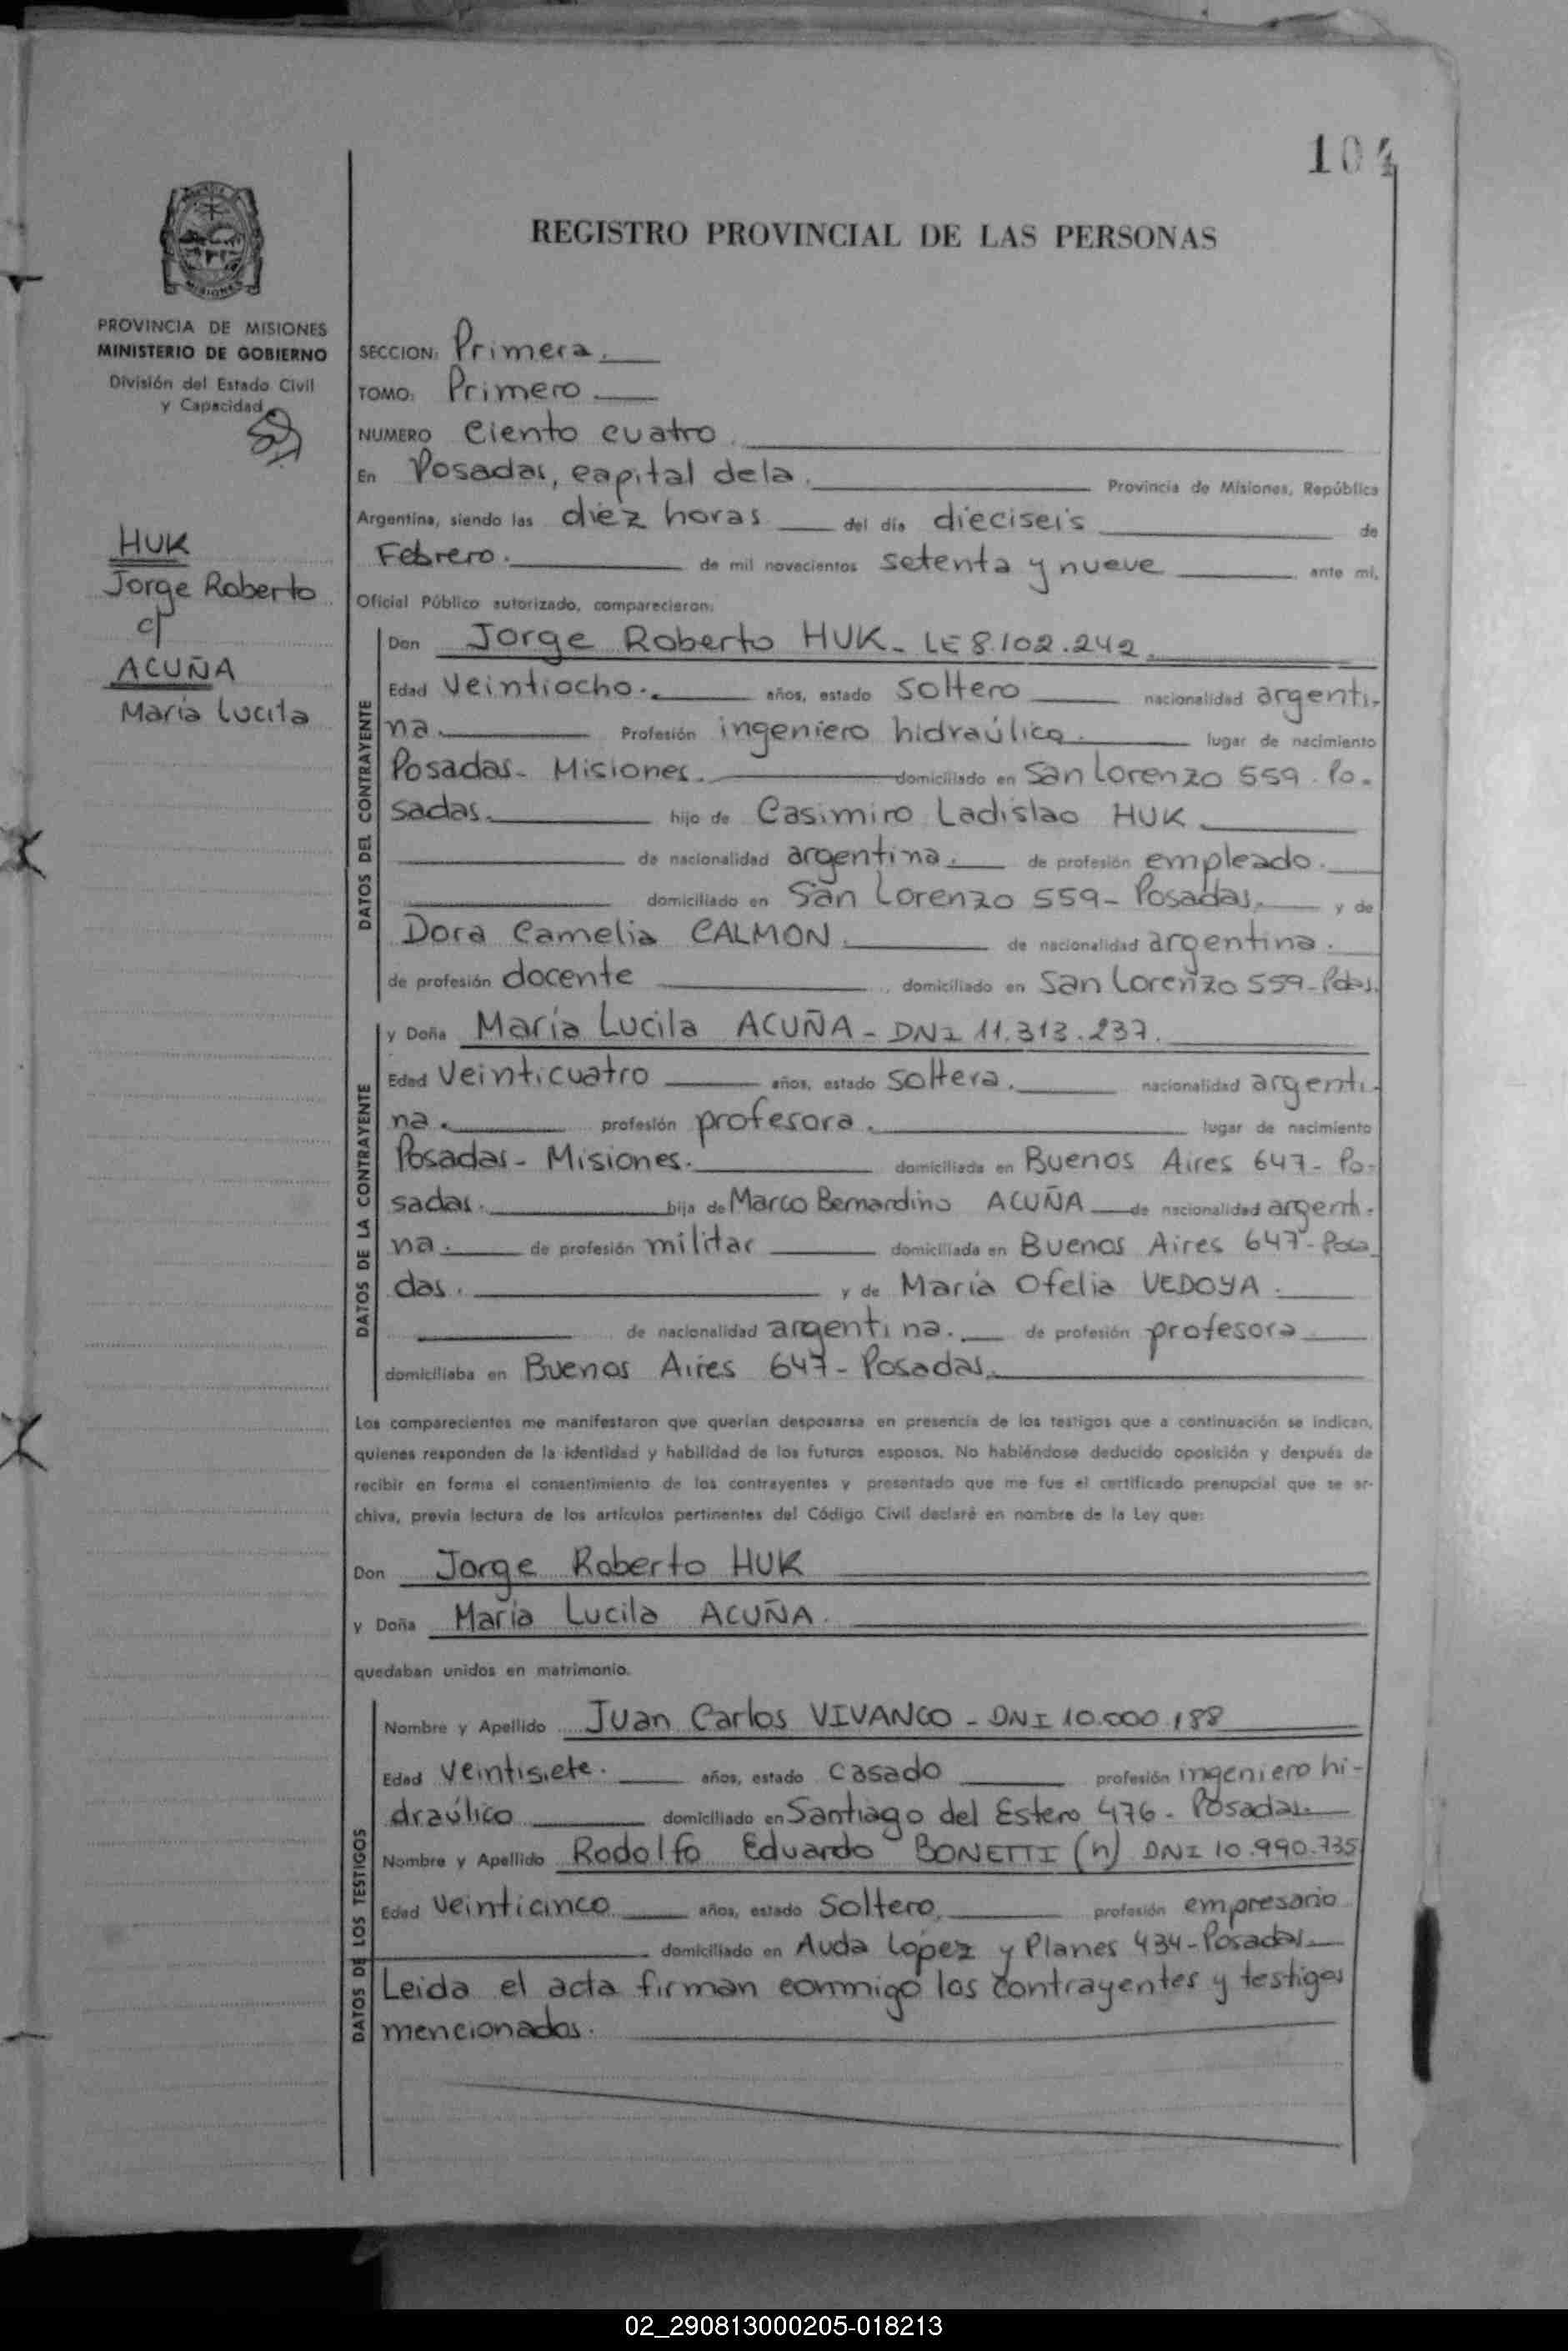 104
REGISTRO PROVINCIAL DE LAS PERSONAS
MISIONES
PROVINCIA DE MISIONES
MINISTERIO DE GOBIERNO
División del Estado Civil
y Capacidad
HUK
Jorge Roberto
c/
ACUÑA
María Lucila
SECCION: Primera.
TOMO: Primero
NUMERO Ciento cuatro.
En Posadas, capital de la. Provincia de Misiones, República
Argentina, siendo las diez horas del día dieciseis de
Febrero. de mil novecientos setenta y nueve ante mí,
Oficial Público autorizado, comparecieron:
DATOS DEL CONTRAYENTE
Don Jorge Roberto HUK - LE 8.102.242.
Edad Veintiocho. años, estado soltero nacionalidad argenti-
na. Profesión ingeniero hidraúlico. lugar de nacimiento
Posadas - Misiones. domiciliado en San Lorenzo 559 - Po-
sadas. hijo de Casimiro Ladislao HUK
de nacionalidad argentina. de profesión empleado.
domiciliado en San Lorenzo 559 - Posadas. y de
Dora Camelia CALMON. de nacionalidad argentina.
de profesión docente domiciliado en San Lorenzo 559 - Pdas.
DATOS DE LA CONTRAYENTE
y Doña María Lucila ACUÑA - DNI 11.313.237.
Edad Veinticuatro años, estado soltera. nacionalidad argenti-
na. profesión profesora. lugar de nacimiento
Posadas - Misiones. domiciliada en Buenos Aires 647 - Po-
sadas. hija de Marco Bernardino ACUÑA de nacionalidad argenti-
na. de profesión militar domiciliada en Buenos Aires 647 - Posa
das. y de María Ofelia VEDOYA.
de nacionalidad argentina. de profesión profesora
domiciliaba en Buenos Aires 647 - Posadas.
Los comparecientes me manifestaron que querían desposarse en presencia de los testigos que a continuación se indican,
quienes responden de la identidad y habilidad de los futuros esposos. No habiéndose deducido oposición y después de
recibir en forma el consentimiento de los contrayentes y presentado que me fue el certificado prenupcial que se ar-
chiva, previa lectura de los artículos pertinentes del Código Civil declaré en nombre de la Ley que:
Don Jorge Roberto HUK
y Doña María Lucila ACUÑA.
quedaban unidos en matrimonio.
DATOS DE LOS TESTIGOS
Nombre y Apellido Juan Carlos VIVANCO - DNI 10.000.188
Edad Veintisiete. años, estado casado profesión ingeniero hi-
draúlico domiciliado en Santiago del Estero 476 - Posadas.
Nombre y Apellido Rodolfo Eduardo BONETTI (h) DNI 10.990.735
Edad Veinticinco años, estado soltero, profesión empresario
domiciliado en Avda López y Planes 434 - Posadas.
Leida el acta firman conmigo los contrayentes y testigos
mencionados.
02_290813000205-018213